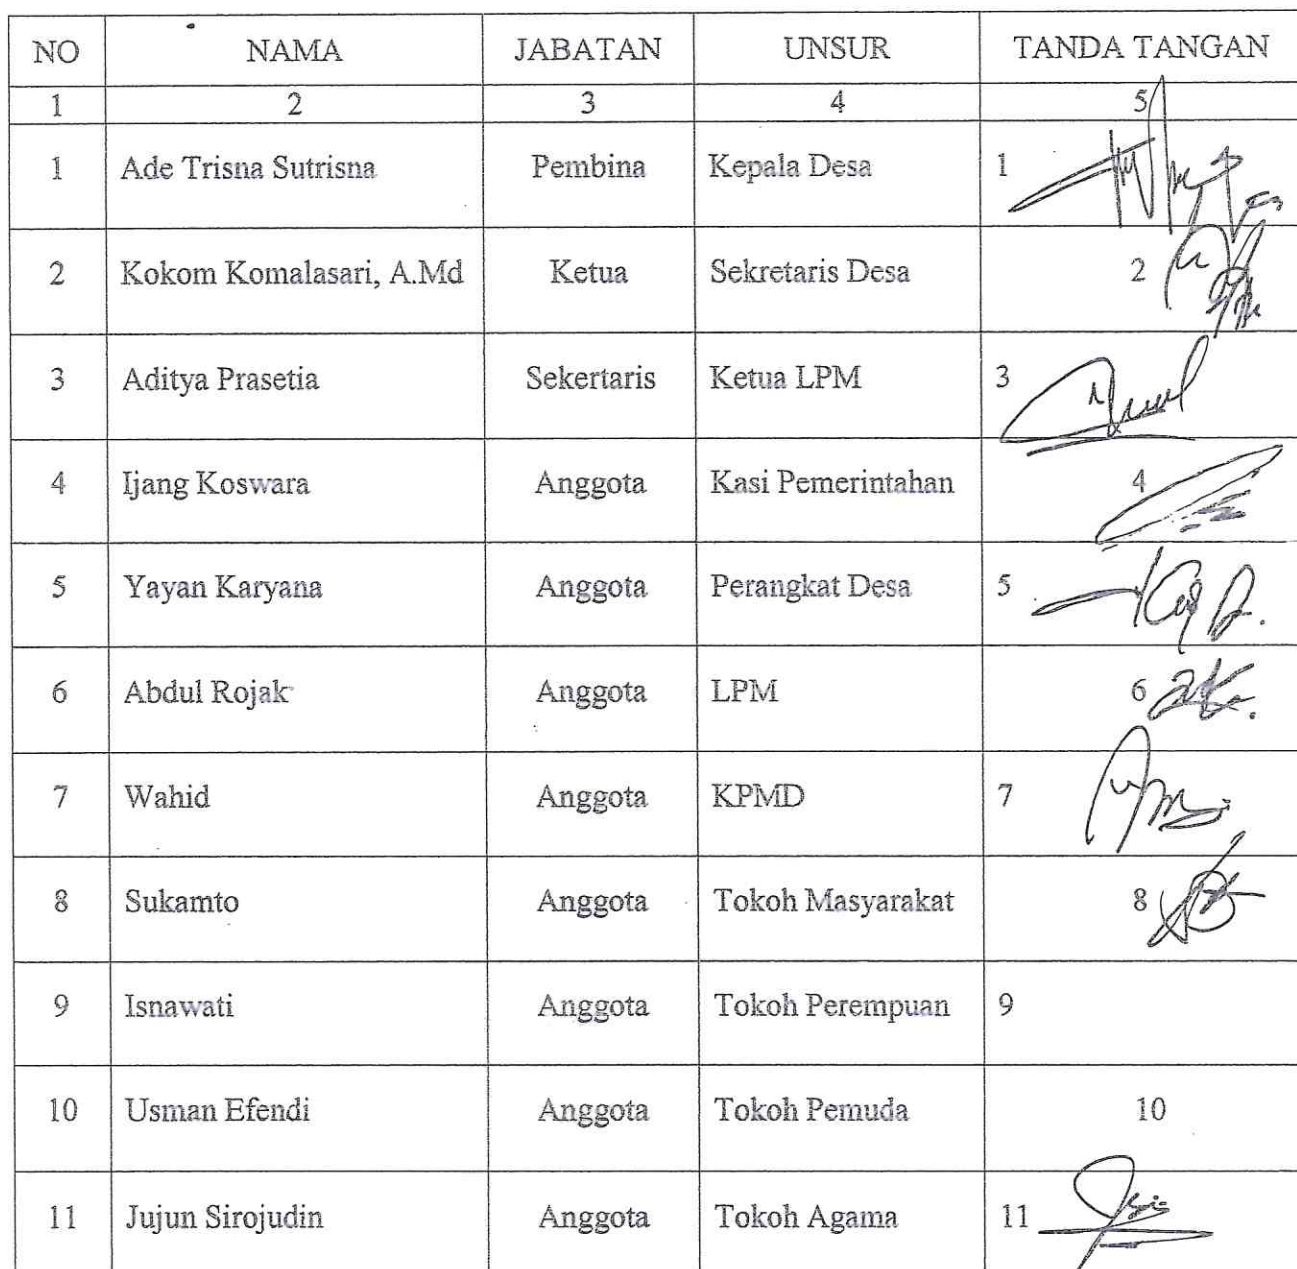 NO NAMA JABATAN UNSUR TANDA TANGAN
1 2 3 4 5
1 Ade Trisna Sutrisna Pembina Kepala Desa 1
2 Kokom Komalasari, A.Md Ketua Sekretaris Desa 2
3 Aditya Prasetia Sekertaris Ketua LPM 3
4 Ijang Koswara Anggota Kasi Pemerintahan 4
5 Yayan Karyana Anggota Perangkat Desa 5
6 Abdul Rojak Anggota LPM 6
7 Wahid Anggota KPMD 7
8 Sukamto Anggota Tokoh Masyarakat 8
9 Isnawati Anggota Tokoh Perempuan 9
10 Usman Efendi Anggota Tokoh Pemuda 10
11 Jujun Sirojudin Anggota Tokoh Agama 11